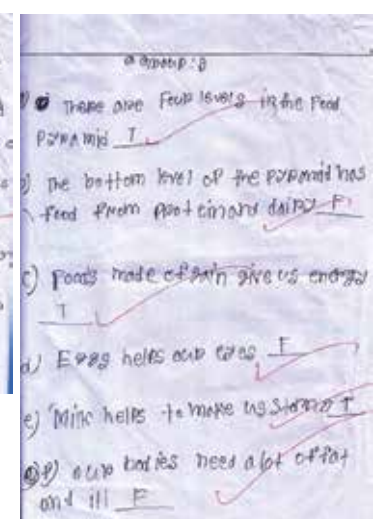 Group: B
There are Four levels in the Food
Pyramid T
b) The bottom level of the pyramid has
food from protein and dairy F
c) Foods made of grain give us energy
T
d) Eggs helps our eyes F
e) Milk helps to make us strong T
f) our bodies need a lot of fat
and F